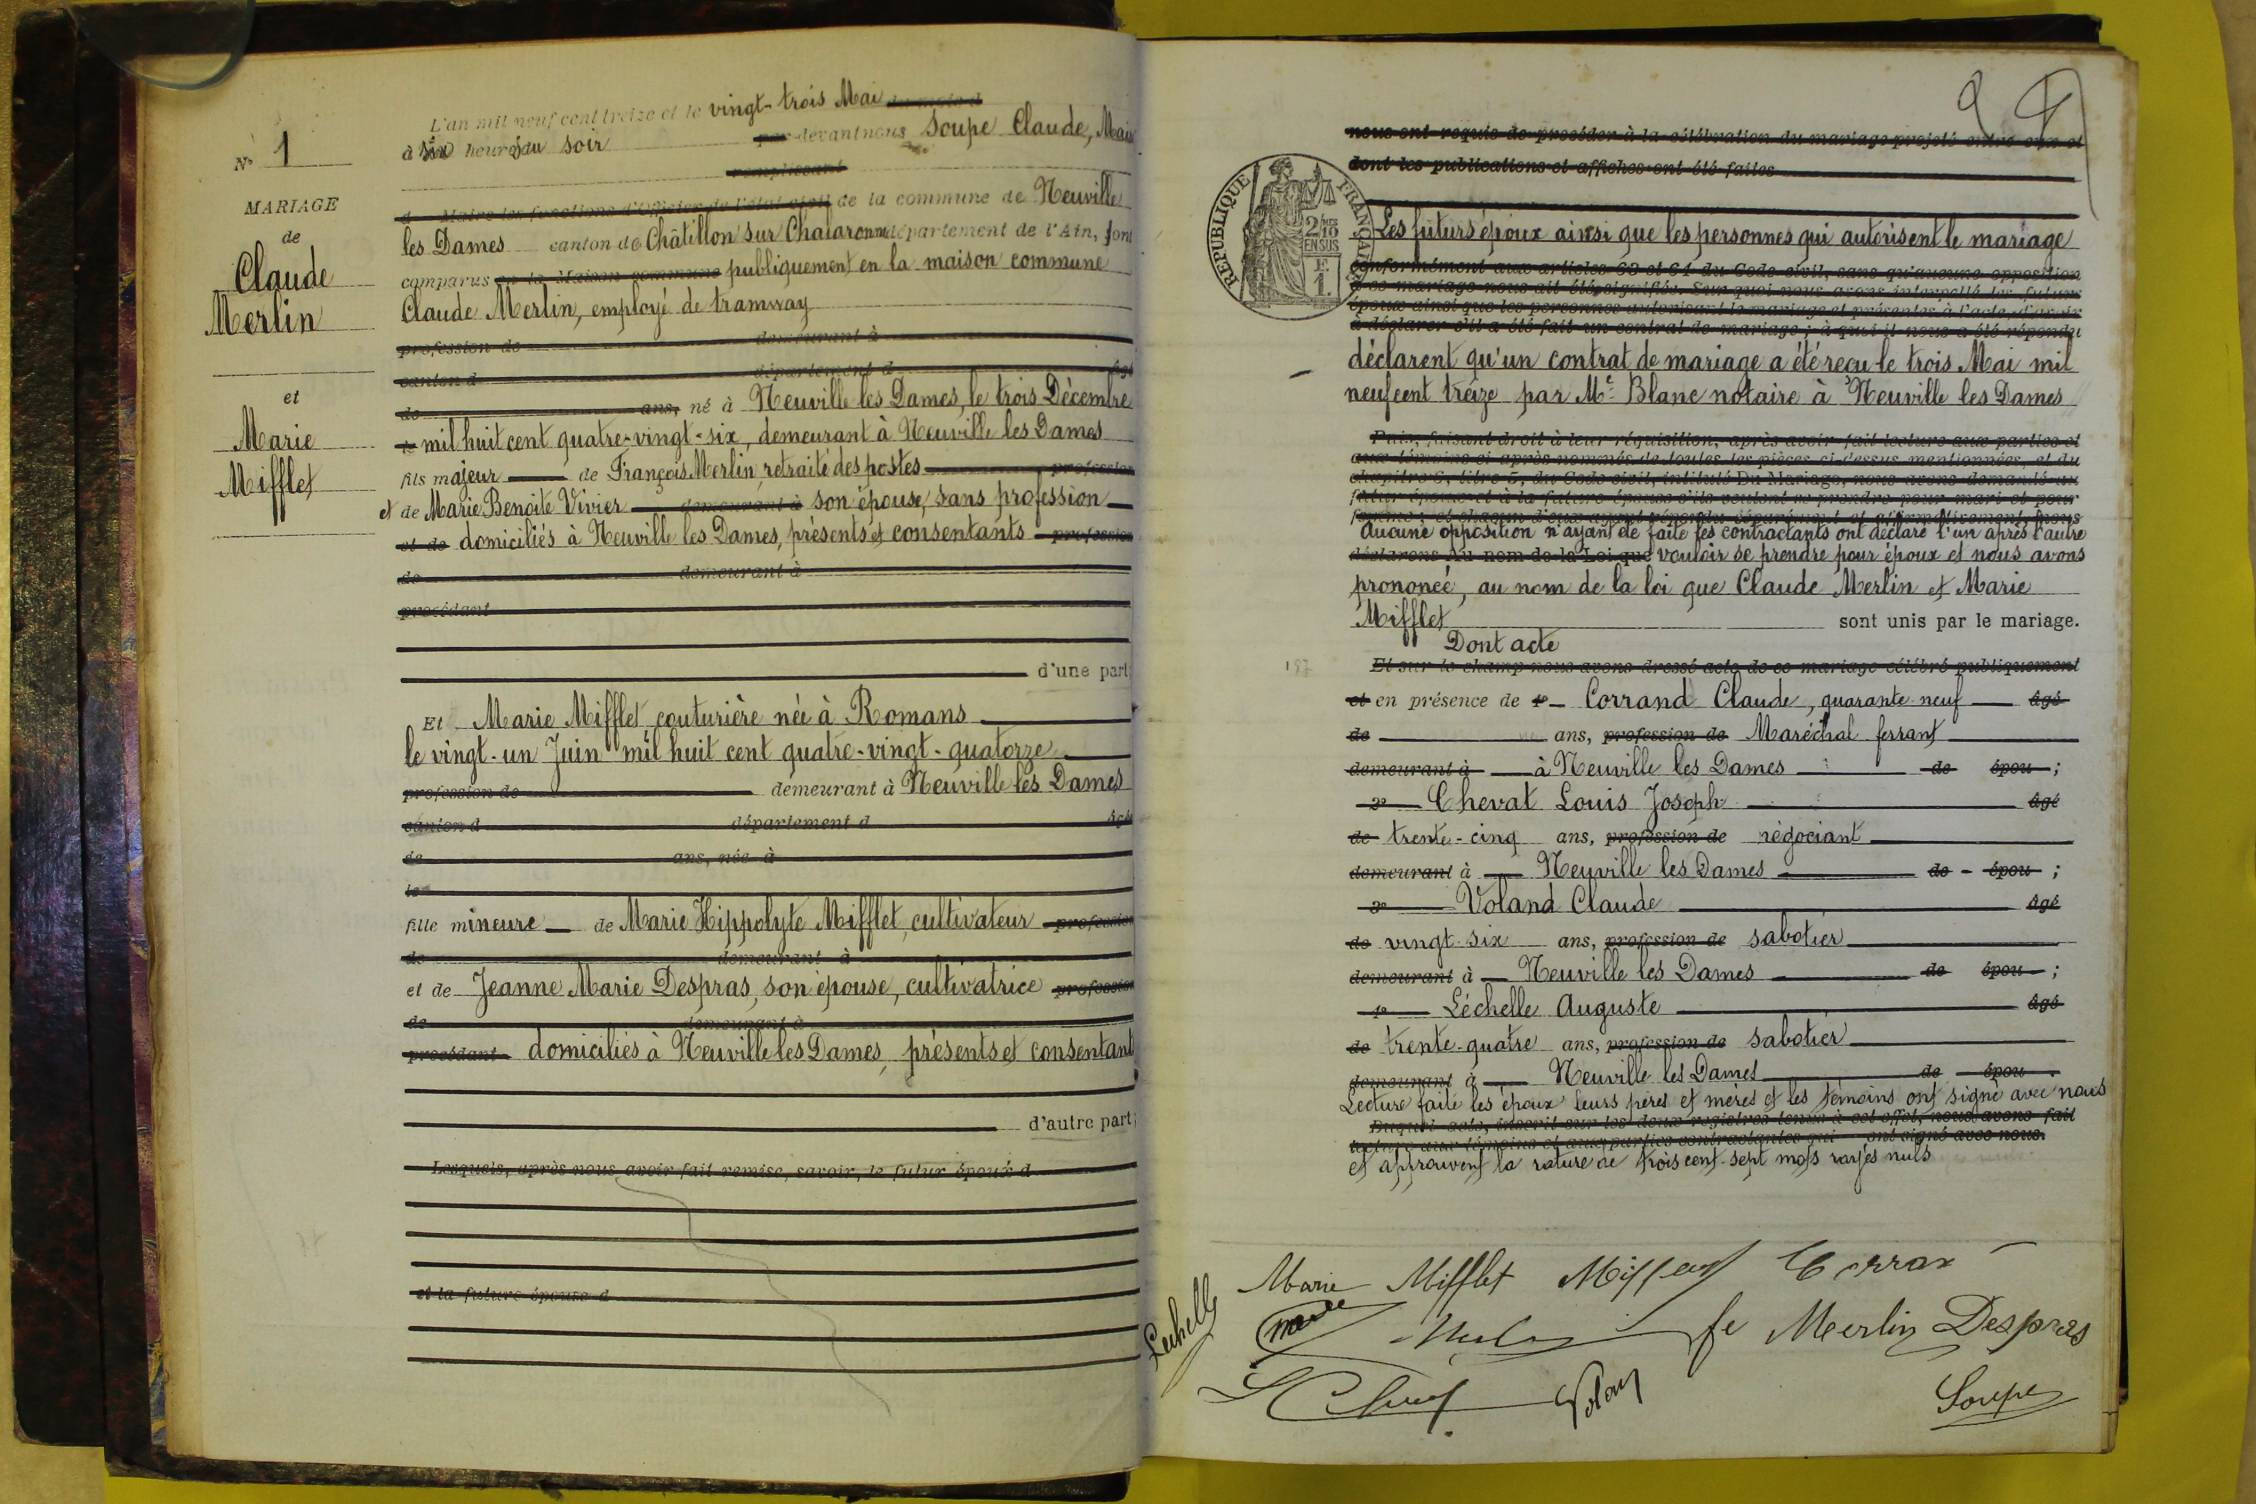 N° 1
MARIAGE
de
Claude
Merlin
et
Marie
Mifflet
L'an mil neuf cent treize et le vingt-trois Mai du mois d
à six heures du soir par devant nous Soupe Claude, Maire
remplissant
d Maire les fonctions d'Officier de l'état civil de la commune de Neuville
les Dames canton de Châtillon sur Chalaronne département de l'Ain, sont
comparus en la Maison commune publiquement en la maison commune
Claude Merlin, employé de tramway
profession de demeurant à
canton d département d âgé
de ans, né à Neuville les Dames, le trois Décembre
le mil huit cent quatre-vingt-six, demeurant à Neuville les Dames
fils majeur de François Merlin, retraité des postes profession
et de Marie Benoîte Vivier demeurant à son épouse, sans profession
et de domiciliés à Neuville les Dames, présents et consentants profession
de demeurant à
procédant
d'une part;
Et Marie Mifflet couturière née à Romans
le vingt-un Juin mil huit cent quatre-vingt-quatorze
profession de demeurant à Neuville les Dames
canton d département d âgée
de ans, née à
le
fille mineure de Marie Hippolyte Mifflet, cultivateur profession
de demeurant à
et de Jeanne Marie Despras, son épouse, cultivatrice profession
de demeurant à
procédant domiciliés à Neuville les Dames, présents et consentants
d'autre part;
Lesquels, après nous avoir fait remise, savoir, le futur époux d
et la future épouse d
nous ont requis de procéder à la célébration du mariage projeté entre eux et
dont les publications et affiches ont été faites
RÉPUBLIQUE FRANÇAISE
2/10
EN SUS
F.
1.
Les futurs époux ainsi que les personnes qui autorisent le mariage
conformément aux articles 63 et 64 du Code civil, sans qu'aucune opposition
à ce mariage nous ait été signifiée. Sur quoi nous avons interpellé les futurs
époux ainsi que les personnes autorisant le mariage et présentes à l'acte, d'avoir
à déclarer s'il a été fait un contrat de mariage ; à quoi il nous a été répondu
déclarent qu'un contrat de mariage a été reçu le trois Mai mil
neuf cent treize par Me Blanc notaire à Neuville les Dames
Puis, faisant droit à leur réquisition, après avoir fait lecture aux parties et
aux témoins ci-après nommés de toutes les pièces ci-dessus mentionnées, et du
chapitre 6, titre 5, du Code civil, intitulé Du Mariage, nous avons demandé au
futur époux et à la future épouse s'ils veulent se prendre pour mari et pour
femme ; et chacun d'eux ayant répondu séparément et affirmativement, nous
Aucune opposition n'ayant été faite les contractants ont déclaré l'un après l'autre
déclarons Au nom de la Loi que vouloir se prendre pour époux et nous avons
prononcé, au nom de la loi que Claude Merlin et Marie
Mifflet sont unis par le mariage.
Dont acte
Et sur le champ nous avons dressé acte de ce mariage célébré publiquement
et en présence de 1° Corrand Claude, quarante neuf âgé
de ans, profession de Maréchal ferrant
demeurant à à Neuville les Dames de épou ;
2° Chevat Louis Joseph âgé
de trente-cinq ans, profession de négociant
demeurant à Neuville les Dames de épou ;
3° Voland Claude âgé
de vingt-six ans, profession de sabotier
demeurant à Neuville les Dames de épou ;
4° Léchelle Auguste âgé
de trente-quatre ans, profession de sabotier
demeurant à Neuville les Dames de épou .
Lecture faite les époux leurs pères et mères et les témoins ont signé avec nous
Duquel acte, inscrit sur les deux registres tenus à cet effet, nous avons fait
lecture aux témoins et aux parties contractantes qui ont signé avec nous.
et approuvent la rature de trois cent-sept mots rayés nuls
Marie Mifflet
Lechelle
fe Merlin Despras
Soupe